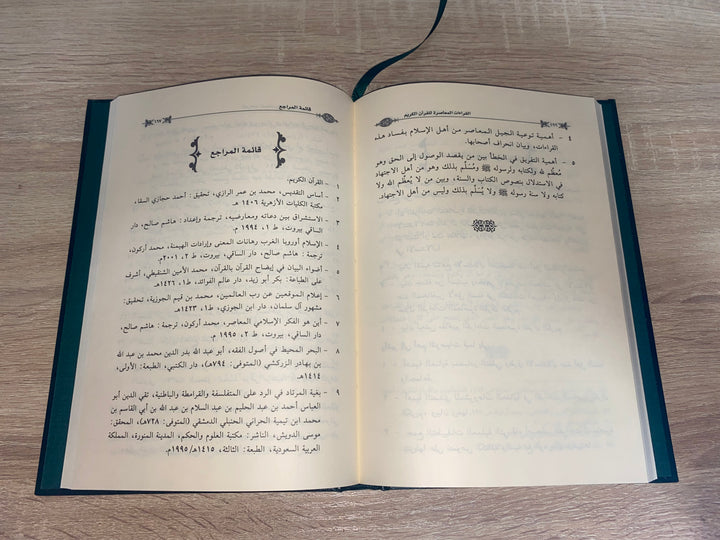 القراءات المعاصرة للقرآن الكريم
١٦٦
٤ - أهمية توعية الجيل المعاصر من أهل الإسلام بفساد هذه
القراءات، وبيان انحراف أصحابها.
٥ - أهمية التفريق في الخطأ بين من يقصد الوصول إلى الحق وهو
مُعظّم لله ولكتابه ولرسوله ﷺ ومُسلّم بذلك وهو من أهل الاجتهاد
في الاستدلال بنصوص الكتاب والسنة، وبين من لا يُعظّم الله ولا
كتابه ولا سنة رسوله ﷺ ولا يُسلّم بذلك وليس من أهل الاجتهاد.
قائمة المراجع
١٦٧
قائمة المراجع
١ - القرآن الكريم.
٢ - أساس التقديس، محمد بن عمر الرازي، تحقيق: أحمد حجازي السقا،
مكتبة الكليات الأزهرية ١٤٠٦ هـ.
٣ - الاستشراق بين دعاته ومعارضيه، ترجمة وإعداد: هاشم صالح، دار
الساقي بيروت، ط ١، ١٩٩٤ م.
٤ - الإسلام أوروبا الغرب رهانات المعنى وإرادات الهيمنة، محمد أركون،
ترجمة: هاشم صالح، دار الساقي، بيروت، ط ٢، ٢٠٠١م.
٥ - أضواء البيان في إيضاح القرآن بالقرآن، محمد الأمين الشنقيطي، أشرف
على الطباعة: بكر أبو زيد، دار عالم الفوائد، ط١، ١٤٢٦هـ.
٦ - إعلام الموقعين عن رب العالمين، محمد بن قيم الجوزية، تحقيق:
مشهور آل سلمان، دار ابن الجوزي، ط١، ١٤٢٣هـ.
٧ - أين هو الفكر الإسلامي المعاصر، محمد أركون، ترجمة: هاشم صالح،
دار الساقي، بيروت، ط ٢، ١٩٩٥ م.
٨ - البحر المحيط في أصول الفقه، أبو عبد الله بدر الدين محمد بن عبد الله
بن بهادر الزركشي (المتوفى: ٧٩٤هـ)، دار الكتبي، الطبعة: الأولى،
١٤١٤هـ.
٩ - بغية المرتاد في الرد على المتفلسفة والقرامطة والباطنية، تقي الدين أبو
العباس أحمد بن عبد الحليم بن عبد السلام بن عبد الله بن أبي القاسم بن
محمد ابن تيمية الحراني الحنبلي الدمشقي (المتوفى: ٧٢٨هـ)، المحقق:
موسى الدويش، الناشر: مكتبة العلوم والحكم، المدينة المنورة، المملكة
العربية السعودية، الطبعة: الثالثة، ١٤١٥هـ/١٩٩٥م.